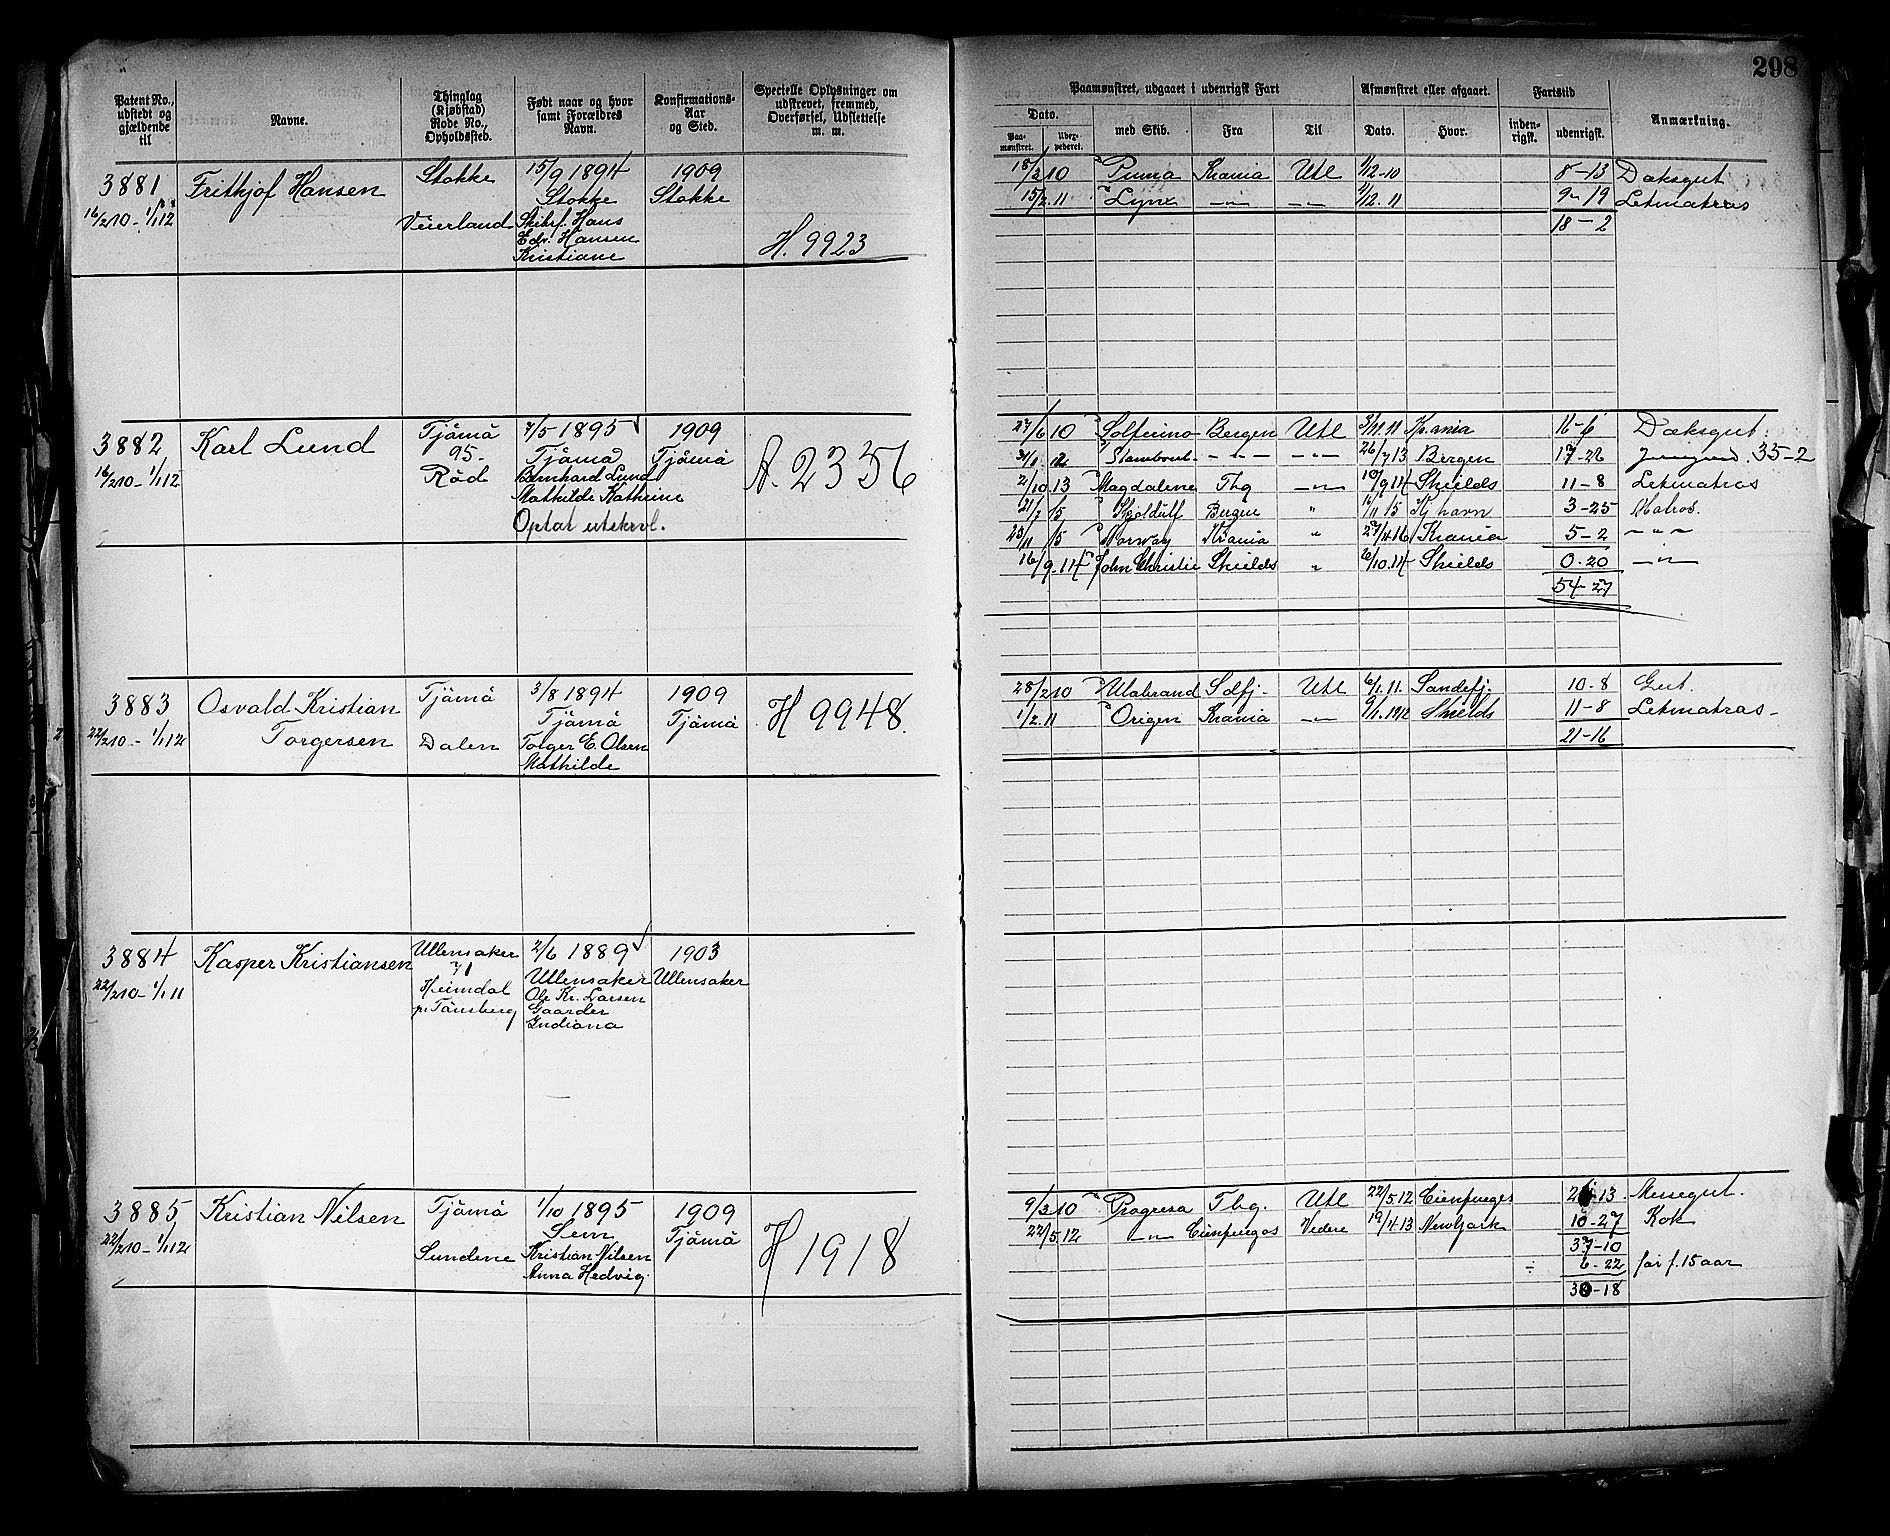 298
Patent No., udstedt og gjældende til
Navne.
Thinglag (Kjøbstad) Rode No., Opholdssted.
Født naar og hvor samt Forældres Navn.
Konfirmations-Aar og Sted.
Specielle Oplysninger om udskrevet, fremmed, Overførsel, Udslettelse m. m.
Paamønstret, udgaaet i udenrigsk Fart
Afmønstret eller afgaaet.
Fartstid
Anmærkning.
Dato.
Paamønstret.
med Skib.
Fra
Til
Dato.
Hvor.
indenrigsk.
udenrigsk.
3881
16/2 10 - 1/1 12
Fritkjof Hansen
Stokke
Veierland
15/9 1894
Stokke
Skibsf. Hans
Edv. Hansen
Kristiane
1909
Stokke
H. 9923
18/2 10 Puma Krania Utl 1/12-10 8-13 Dæksgut
15/2 11 Lynx -"- -"- 4/12 11 9-19 Letmatros
18-2
3882
16/2 10 - 1/1 12
Karl Lund
Tjömö
95.
Röd
7/5 1895
Tjömö
Bernhard Lund
Mathilde Kathrine
Optat utskrvl.
1909
Tjömö
A. 2356
27/6 10 Solferino Bergen Utl 11 Kr.ania 16-6 Dæksgut.
Stamboul -"- -"- 26/7 13 Bergen 17-26 35-2
2/10 13 Magdalene Tbg -"- 10/9 14 Shields 11-8 Letmatros
21/7 15 Skjoldulf Bergen " 16/11 15 Kj havn 3-25 Matros.
25/11 15 Norway Krania " 27/4 16 Krania 5-2 -"-
16/9.14 John Christie Shields " 6/10.14 Shields 0-20 -"-
54-27
3883
22/2 10 - 1/1 12
Osvald Kristian
Torgersen
Tjömö
Dalen
3/8 1894
Tjömö
Torger E. Olsen
Mathilde
1909
Tjömö
H 9948.
28/2 10 Ulabrand Sdfj. Utl 6/1.11. Sandefj. 10-8 Gut.
1/2 11 Origen Krania -"- 9/1.1912 Shields 11-8 Letmatros
21-16
3884
22/2 10 - 1/1 11
Kasper Kristiansen
Ullensaker
71
Heimdal
pr Tönsberg
2/6 1889
Ullensaker
Ole Kr. Larsen
Gaarder
Indiana
1903
Ullensaker
3885
22/2 10 - 1/1 12
Kristian Nilsen
Tjömö
Sundene
1/10 1895
Sem
Kristian Nilsen
Anna Hedvig.
1909
Tjömö
H 1918
9/3 10 Progreso Tbg. Utl 22/5.12 Cienfuegos 26-13 Messegut.
22/5.12 -"- Cienfuegos Videre 19/4 13 NewYork 10-27 Kok
37-10
÷ 6-22 før f. 15 aar
30-18